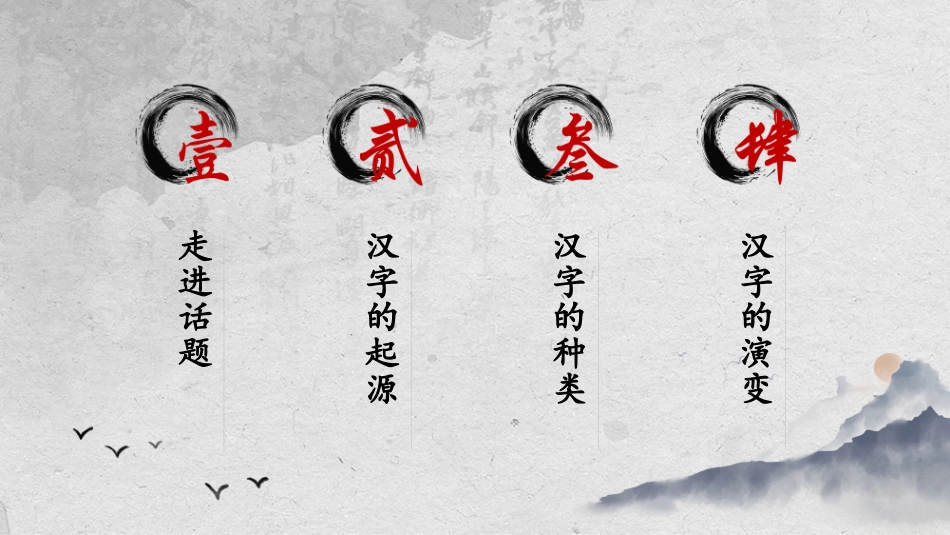 壹
走进话题
贰
汉字的起源
叁
汉字的种类
肆
汉字的演变